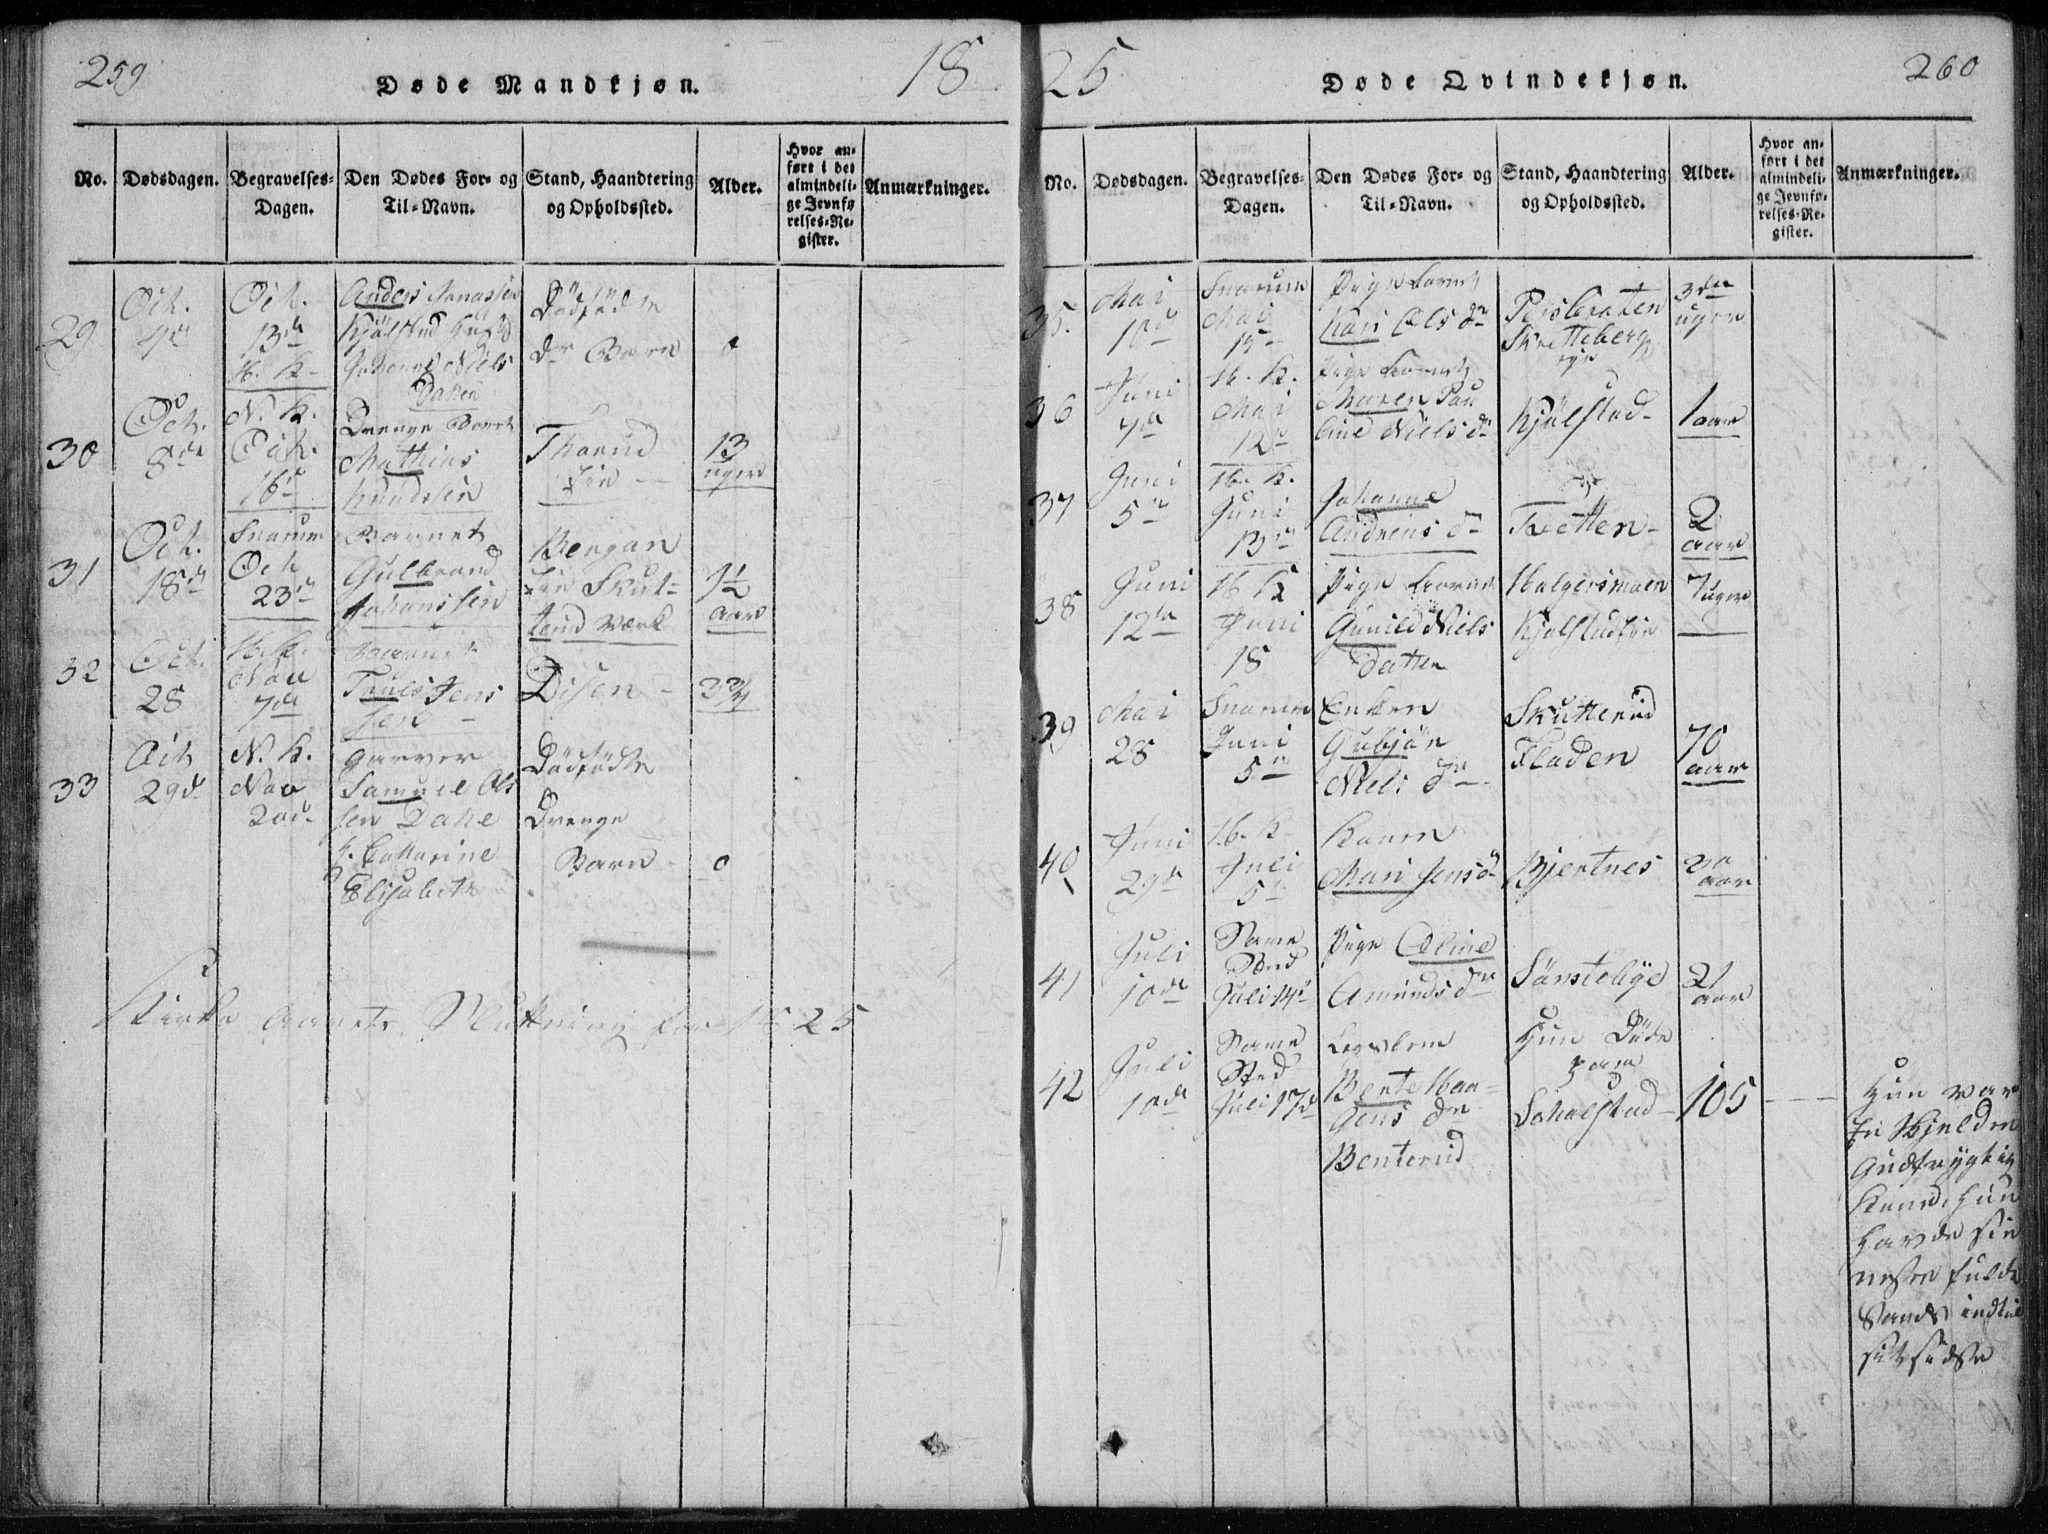 259
Døde Mandkjøn.
18
No.
Dødsdagen.
Begravelses-
Dagen.
Den Dødes For- og
Til-Navn.
Stand, Haandtering
og Opholdssted.
Alder.
Hvor an-
ført i det
almindeli-
ge Jevnfø
relses-Re-
gister.
Anmærkninger.
29
Oct.
4de
Oct.
13de
H. K.
Anders Jonassen
Kjölstad
Niels
Datter
Dödfödte
Barn
0
30
Oct.
8de
N. K.
Oct.
16de
Drenge Barnet
Mathias
Knudssen
Thorud
Eie
13
uger
31
Oct.
18de
Snarum
Oct
23de
Barnet
Gulbrand
Johanssen
Bergan
Eie Skut-
terud Værk
1½
aar
32
Oct.
28
H. K.
Nov
7de
Barnet
Truls Jens
sen
Disen
3¾
33
Oct
29d
N. K.
Nov
20de
Garver
Samuel Ols
sen Dahl
Catharine
Elisabeth
Dödfödte
Drenge
Barn
0
Kirke Aarets Slutning for 1825
25
Døde Qvindekjøn.
260
No.
Dødsdagen.
Begravelses-
Dagen.
Den Dødes For- og
Til-Navn.
Stand, Haandtering
og Opholdssted.
Alder.
Hvor an-
ført i det
almindeli-
ge Jevnfø-
relses-Re-
gister.
Anmærkninger.
35.
Mai
10d
Snarum
Mai
15
Pige Barnet
Kari Ols dr
Persbraten
Skretteberg
eje
3de
uger
36
Juni
7de
H. K.
Mai
12te
Pige Barnet
Maren Pau
line Niels dr
Kjölstad
1 aar
37
Juni
5te
H. K.
Juni
13de
Johanne
Andreas dr
Tretten
2
aar
38
Juni
12te
H K
Juni
18
Pige Barnet
Gunild Niels
Datter
Holgersmoen
Kjölstadeie
7 uger
39
Mai
28
Snarum
Juni
5te
Enken
Gubjör
Niels dr
Skutterud
Fladen
70
aar
40
Juni
29de
H. K
Juli
5te
Konen
Mari Jens dr
Bjertnes
20
aar
41
Juli
10de
Samme
Sted
Juli 14de
Pige Oline
Amunds dr
Sönstebye
21
aar
42
Juli
10de
Samme
Sted
Juli 17de
Lægslem
Berte Haa-
gens dr
Benterud
Hun Döde
paa
Lohalstad
105
Hun var
En Sjelden
Gudfrygtig
Kone, hun
havde sin
næsten fulde
Sands indtil
sit sidste